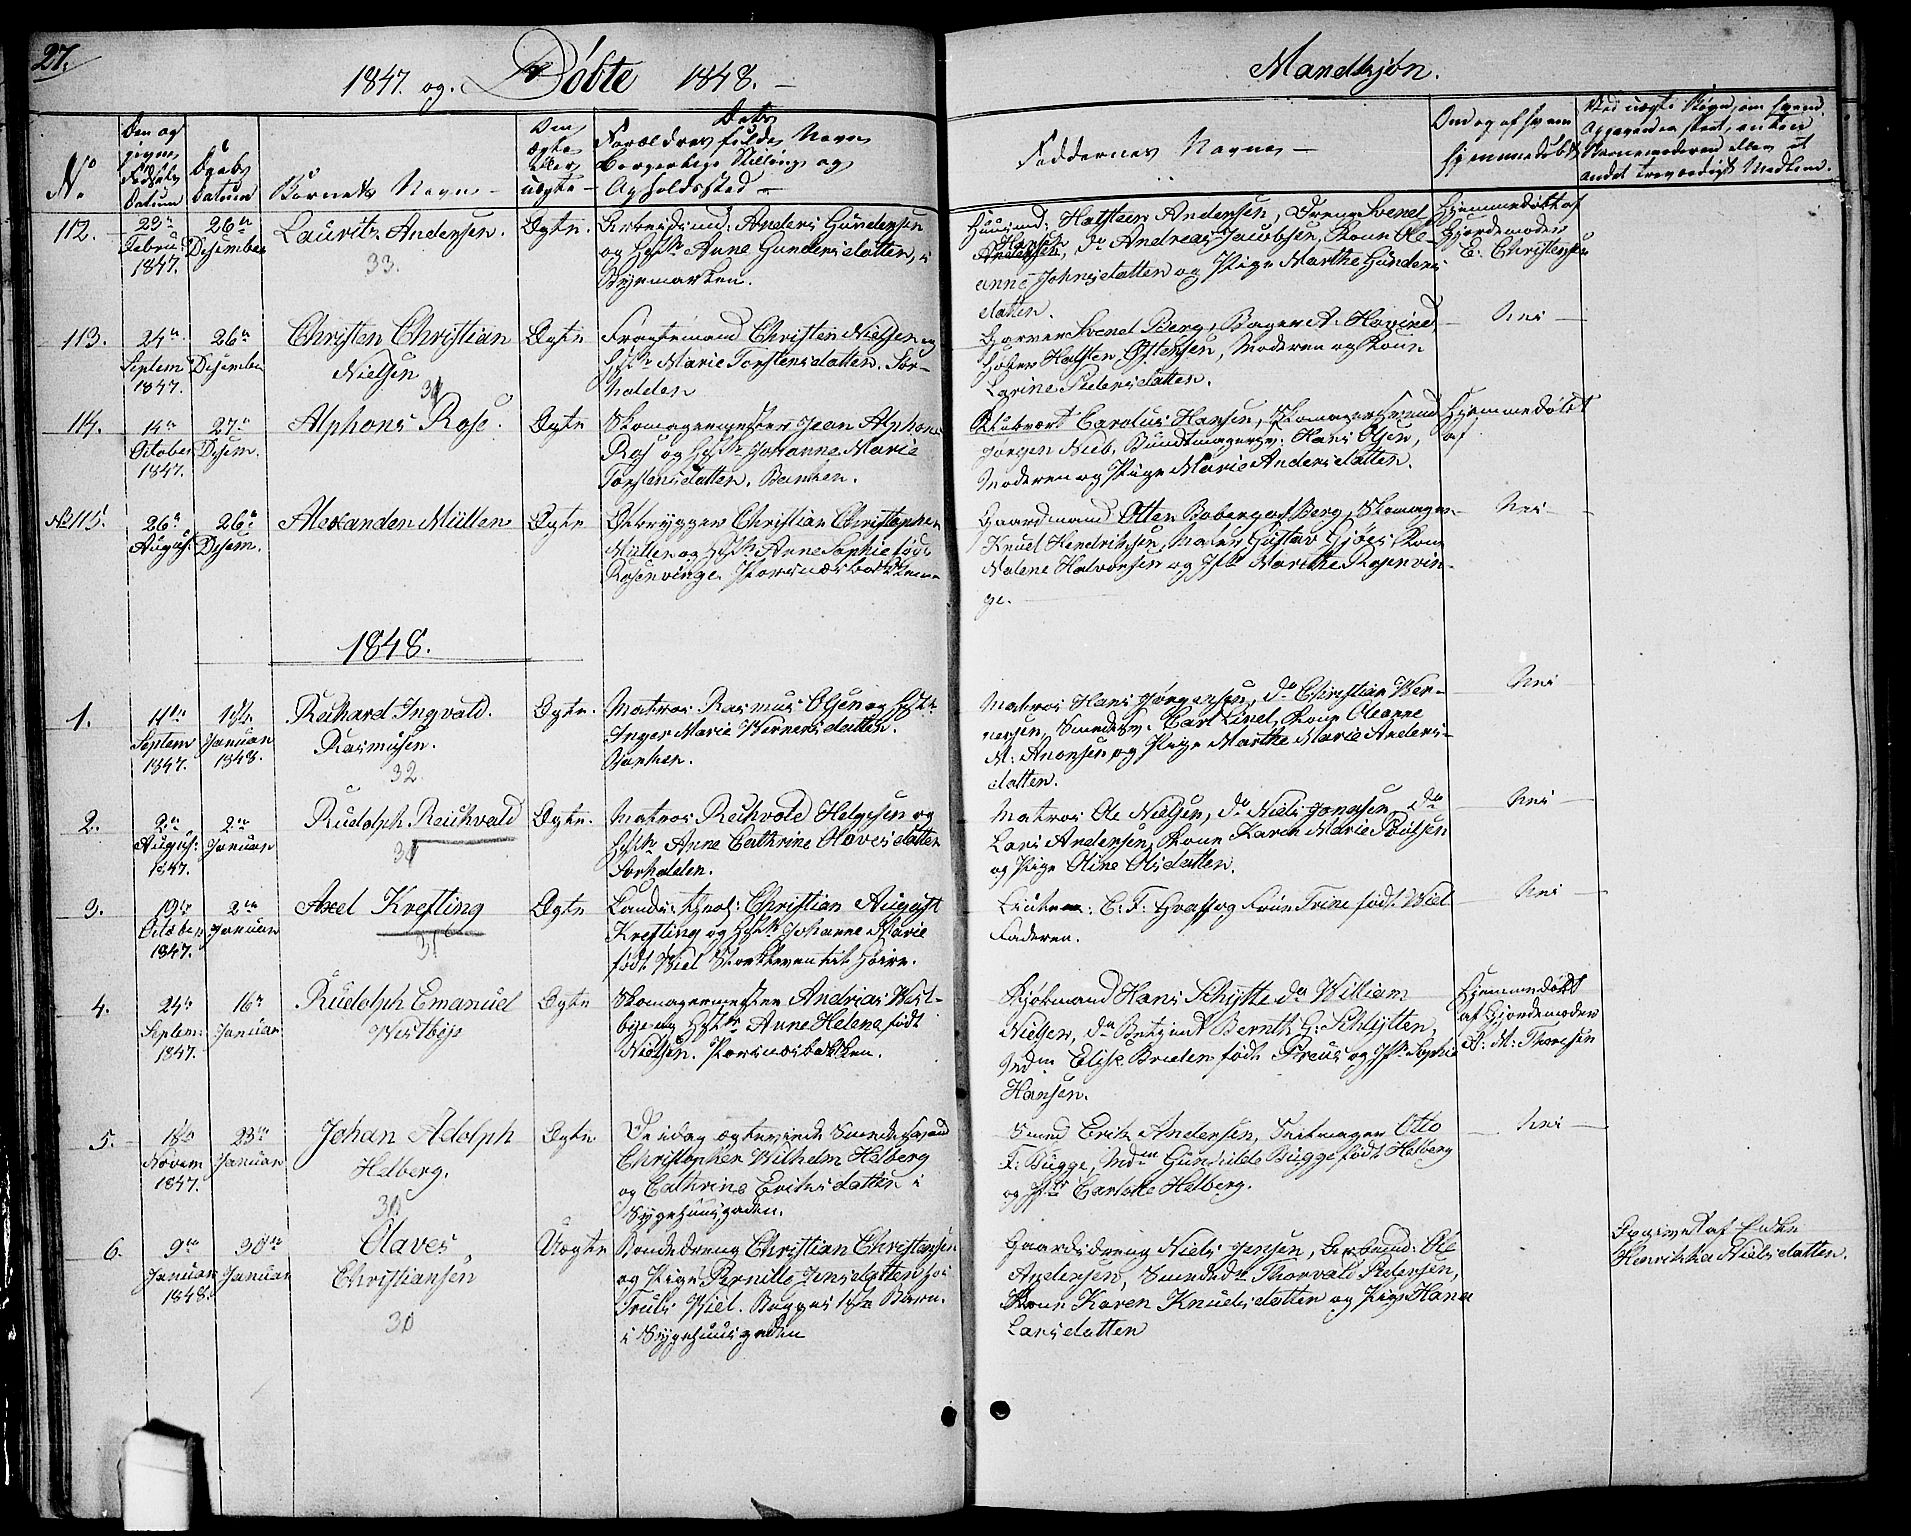 27.
1847. og Døbte 1848. —
Mandkjøn.
No
Den og
givne
Fødsels
Datum
Daabs
Datum
Barnets Navn —
Om
Ægte
eller
uægte —
Dets
Forældres fulde Navn
borgerlige Stilling og
Opholdssted —
Faddernes Navne —
Om og af hvem
hjemmedøbt
112.
23de
Febru
1847.
26de
Desember
Lauritz Andersen.
33.
Ægte.
Arbeidsmd: Anders Gundersen
og Hst. Anne Gundersdatter, i
Byemarken.
Huusmd: Halsteen Andersen, Dreng Svend
Hansen
Andersen, do Andreas Jacobsen, Kone Ole-
anne Johnsdatter og Pige Marthe Gunders
datter.
Hjemmedøbt af
Gjordemoder
E. Christensen
113.
24de
Septem
1847.
26de
Desember
Christen Christian
Nielsen
Ægte
Fragtemand Christen Nielsen og
Hst. Marie Torstensdatter. For-
halden
Garver Svend Berg, Bager A. Hovind
Halsten Østensen, Moderen og Kone
Larine Pedersdatter.
Nei —
114.
14de
October
1847.
27de
Desem.
Alphons Rose.
Ægte
Skomagermester Jean Alphons
Ros og Hst. Johanne Marie
Torstensdatter. Banken.
Klubvert Carolus Hansen, Skomagersvend
Jørgen Nieb, Bundtmagersv: Hans Olsen,
Moderen og Pige Marie Andersdatter.
Hjemmedøbt
af
No 115.
26de
August
26de
Desem.
Alexander Müller
Ægte
Ølbrygger Christian Christopher
Müller og Hst. Anne Sophie født
Rosenvinge. Porsnæsbakken
Gaardmand Otter Boberg af Berg, Skomager
Knud Hendriksen, Maler Gustav Gjöes, Kone
Malene Halvorsen og Jfr. Marthe Rosenvin-
ge.
Nei —
1848.
1.
11te
Septem
1847.
1ste
Januar
1848.
Reichard Ingvald.
Rasmusen.
32.
Ægte.
Matros Rasmus Olsen og Hst.
Inger Marie Wernersdatter.
Banken.
Matros Hans Jørgensen, do Christian Wer-
nersen, Smedsv: Carl Linel, Kone Oleanne
M: Anonsen og Pige Marthe Marie Anders-
datter.
Nei
2.
2den
August
1847.
2den
Januar
Rudolph Reichvald
Ægte.
Matros Reichvald Helgesen og
Hst. Anne Cathrine Olavesdatter
Forhalden.
Matros Ole Nielsen, do Niels Jonassen, do
Lars Andersen, Kone Karen Marie Poulsen
og Pige Oline Olsdatter.
— Nei —
3.
19de
October
1847.
2den
Januar
Axel Krefting
31
Ægte
Cands. theol: Christian August
Krefting og Hst. Johanne Marie
født Wiel
Lieuten: C. F. Graff og Frue Trine født Wiel
Faderen.
Nei —
4.
24de
Septem:
1847.
16de
Januar
Rudolph Emanuel
Westbye
Ægte
Skomagermester Andreas West-
bye og Hst. Anne Helene, født
Nielsen. Porsnæsbakken.
Kjøbmand Hans Schytte, do William
Nielsen, do Bernth G: Schlytter,
Mdm Elise Breden født Preus og Jfr. Sophie
Hansen.
Hjemmedøbt
af Gjordemoder
A: M: Thoresen
5.
18de
Novem
1847.
23de
Januar
Johan Adolph
Helberg.
Ægte
De idag ægteviede Smedesvend
Christopher Wilhelm Helberg
og Cathrine Eriksdatter i
Sygehuusgaden.
Smed Erik Andersen, Feltmager Otto
F: Bugge, Mdm Gunhilde Bugge født Helberg
og Jfr Carlotte Helberg.
— Nei —
6.
9de
Januar
1848.
30te
Januar
Olaves
Christiansen
30
Uægte
Bondedreng Christian Christensen
og Pige Pernille Jensdatter hos
Truls Wiel. Begges 1ste Barn.
i Sygehuusgaden
Gaardsdreng Niels Jensen, Ole
Andersen, Smeded: Thorvald Pedersen,
Kone Karen Knudsdatter og Pige Hane
Larsdatter
Henrikka Nielsdatter.